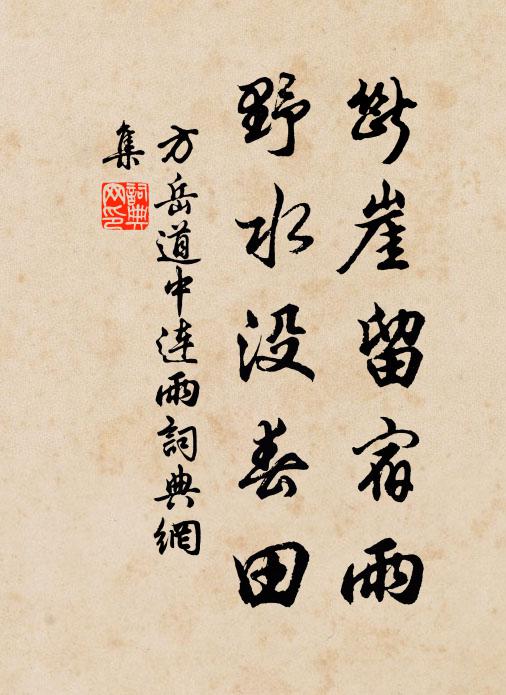 断崖留宿雨
野水没春田
方岳道中连雨詞典網
集
詞典
网印